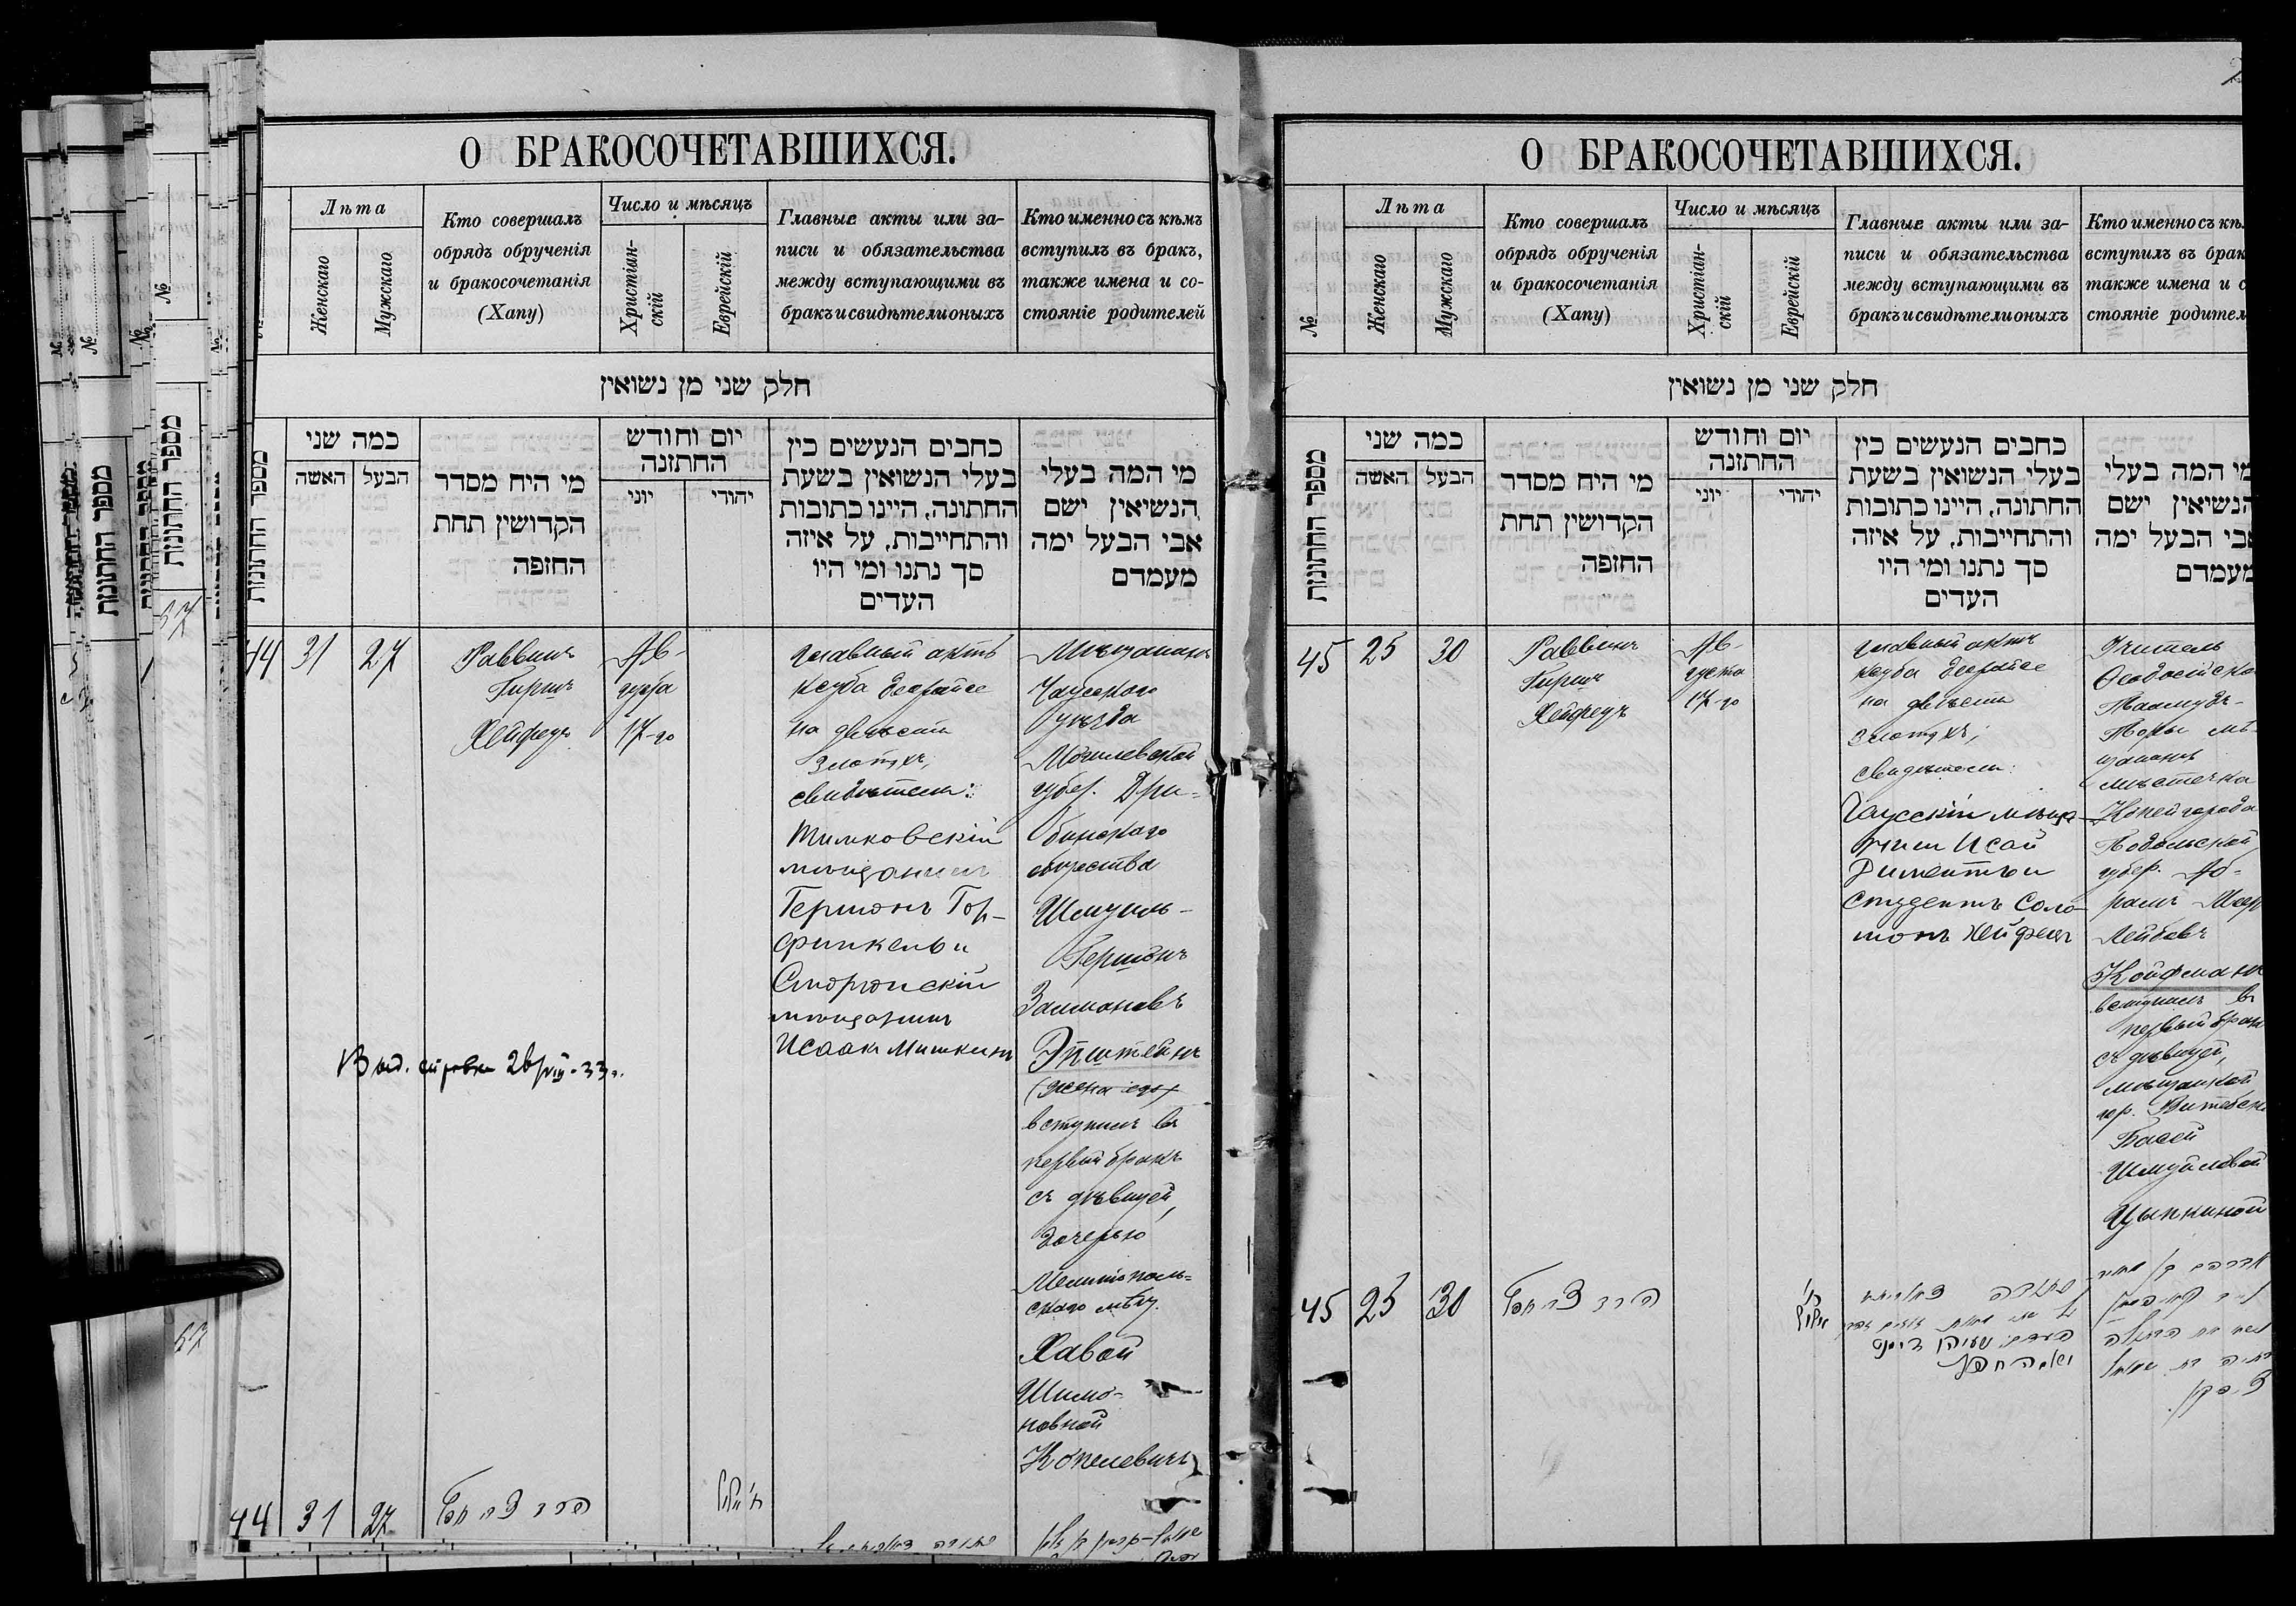 О БРАКОСОЧЕТАВШИХСЯ.
Лѣта
Женскаго
Мужскаго
Кто совершалъ
обрядъ обрученія
и бракосочетанія
(Хапу)
Число и мѣсяцъ
Христіан-
скій
Еврейскій
Главные акты или за-
писи и обязательства
между вступающими въ
бракъ и свидѣтели оныхъ
Кто именно съ кѣмъ
вступилъ въ бракъ,
также имена и со-
стояніе родителей
חלק שני מן נשואין
מספר החתונות
כמה שני
האשה
הבעל
מי היח מסדר
הקדושין תחת
החזפה
יום וחודש
החתזנה
יוני
יהודי
כחבים הנעשים כין
בעלי הנשואין בשעת
החתונה, היינו כתובות
והתחייבות, על איזה
סך נתנו ומי היו
העדים
מי המה בעלי
הנשיאין ישם
אבי הבעל ימה
מעמדם
44
31
27
Раввинъ
Гиршъ
Хейфецъ
Ав-
густа
17-го
главный актъ
ксуба деорайсе
на двѣсти
злотыхъ,
свидѣтели:
Климовскій
мѣщанинъ
Гершонъ Гор-
финкель и
Сморгонскій
мѣщанинъ
Исаакъ Мишкинъ
Мѣщанинъ
Чаусскаго
уѣзда
Могилевской
губер. Дри-
бинскаго
общества
Шмуиль-
Гершонъ
Залмановъ
Эпштейнъ
вступилъ въ
первый бракъ
съ дѣвицей,
дочерью
Мелитополь-
скаго мѣщ.
Хавой
Шимо-
новной
Копелевичъ
Выд. справка 26/VIII-33г.
44
31
27
הרב צבי חפץ
О БРАКОСОЧЕТАВШИХСЯ.
№
Лѣта
Женскаго
Мужскаго
Кто совершалъ
обрядъ обрученія
и бракосочетанія
(Хапу)
Число и мѣсяцъ
Христіан-
скій
Еврейскій
Главные акты или за-
писи и обязательства
между вступающими въ
бракъ и свидѣтели оныхъ
Кто именно съ кѣ
вступилъ въ брак
также имена и с
стояніе родител
חלק שני מן נשואין
מספר החתונות
כמה שני
האשה
הבעל
מי היח מסדר
הקדושין תחת
החזפה
יום וחודש
החתזנה
יוני
יהודי
כחבים הנעשים כין
בעלי הנשואין בשעת
החתונה, היינו כתובות
והתחייבות, על איזה
סך נתנו ומי היו
העדים
מי המה בעלי
הנשיאין ישם
אבי הבעל ימה
מעמדם
45
25
30
Раввинъ
Гиршъ
Хейфецъ
Ав-
густа
17-го
главный актъ
ксуба деорайсе
на двѣсти
злотыхъ,
свидѣтели:
Чаусскій мѣща-
нинъ Исай
Диментъ и
студентъ Соло-
монъ Хейфецъ
Учитель
Ѳеодосійска
Талмудъ-
Торы мѣ-
щанинъ
мѣстечка
Копайгорода
Подольской
губер. Аб-
рамъ
Лейбовъ
Койфманъ
вступилъ въ
первый бракъ
съ дѣвицей,
мѣщанкой
гор. Витебска
Басей
Шмуйловой
Цыпкиной
45
25
30
הרב צבי חפץ